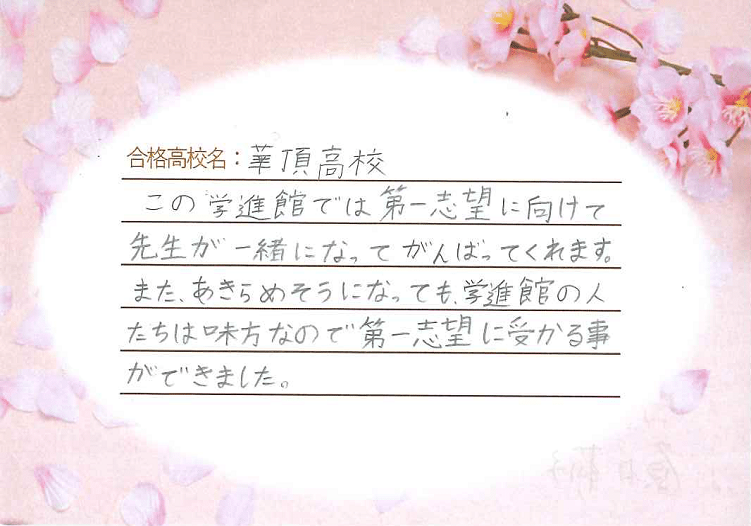 合格高校名：華頂高校
この学進館では第一志望に向けて
先生が一緒になってがんばってくれます。
また、あきらめそうになっても、学進館の人
たちは味方なので第一志望に受かる事
ができました。